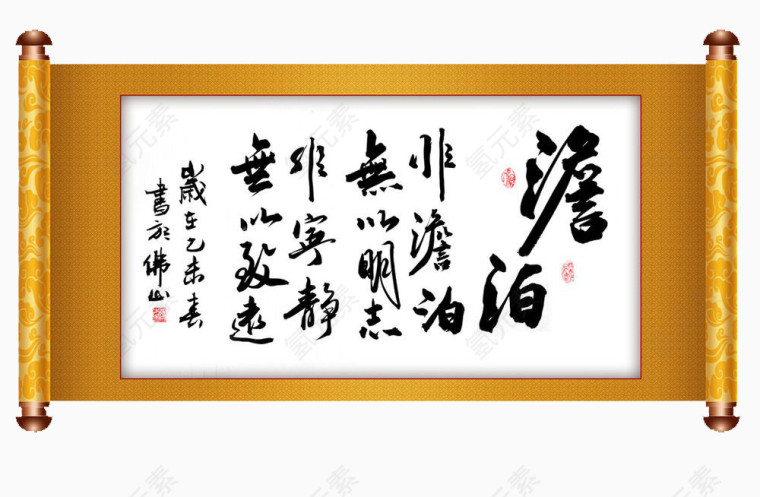 澹泊
非澹泊
無以明志
非寧静
無以致遠
歲在乙未春
書於佛山
氢元素